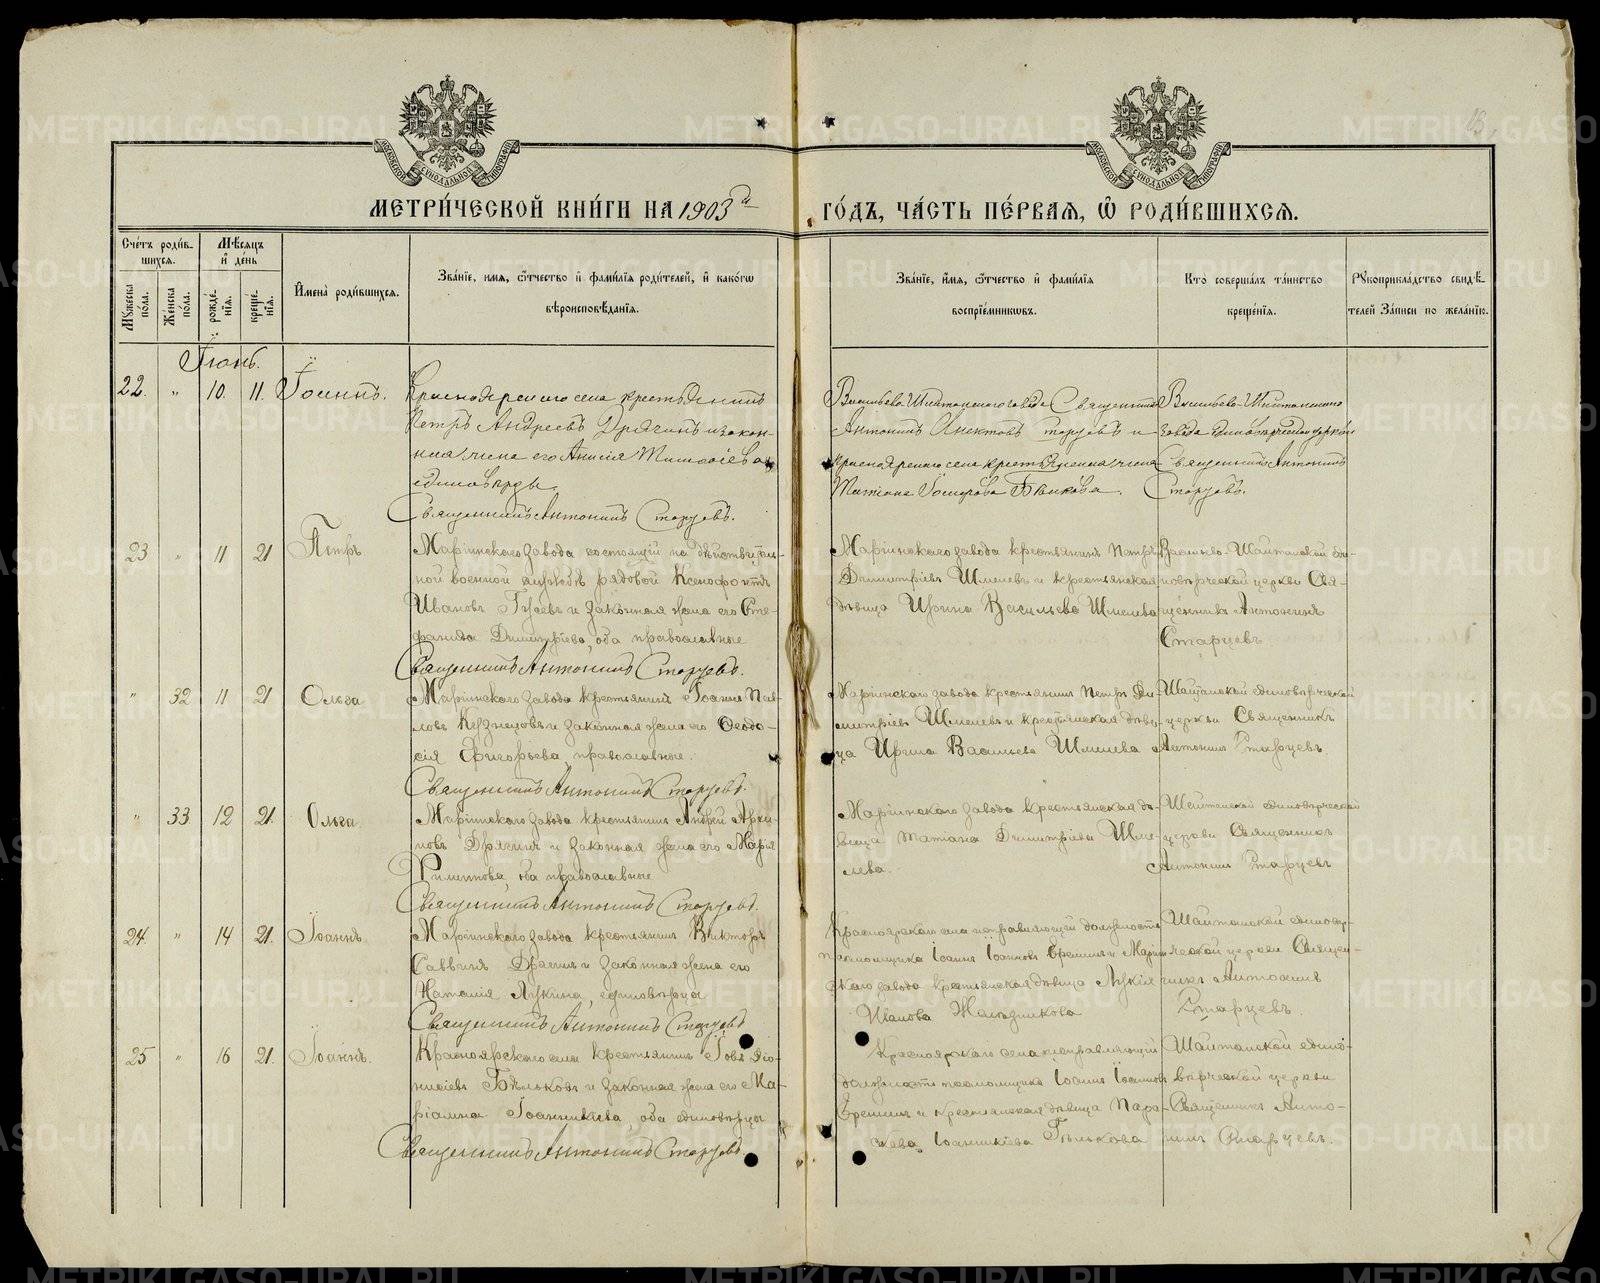 МЕТРИ́ЧЕСКОЙ КНИ́ГИ НА 1903й ГО́ДЪ, ЧА́СТЬ ПЕ́РВАЯ, Ѡ РОДИ́ВШИХСЯ.
Сче́тъ роди́вшихся.
Мꙋ́жеска по́ла.
Же́нска по́ла.
Мѣ́сяцъ и де́нь
рожде́нїя.
креще́нїя.
И́мена роди́вшихся.
Зва́нїе, имя, ѻ҆́тчество и фами́лїя роди́телей, и како́гѡ
вѣроисповѣ́данїя.
Зва́нїе, и́мя, ѻ҆́тчество и фами́лїя
воспрїе́мникѡвъ.
Кто̀ соверша́лъ та́инство
креще́нїя.
Рꙋкоприкла́дство свидѣ́-
телей за́писи по жела́нїю.
Іюнь.
22. " 10. 11. Іоаннъ.
Красноярскаго села крестьянинъ
Петръ Андреевъ Дрягинъ и закон-
ная жена его Анисія
единовѣрцы
Священникъ Антонинъ Старцевъ.
Васильево-Шайтанскаго завода Священникъ
Антонинъ Старцевъ и
Красноярскаго села крестьянская жена
Татіана Бѣлькова.
Васильево-Шайтанскаго
завода единовѣрческой церкви
Священникъ Антонинъ
Старцевъ.
23 " 11 21 Петръ
Маріинскаго завода состоящій на дѣйствитель-
ной военной службѣ рядовой Ксенофонтъ
Ивановъ Гусевъ и законная жена его Сте-
фанида Димитріева, оба православные
Священникъ Антонинъ Старцевъ.
Маріинскаго завода крестьянинъ Петръ
Димитріевъ Шмелевъ и крестьянская
дѣвица Ирина Васильева Шмелева
Васильево-Шайтанской едино-
вѣрческой церкви Свя-
щенникъ Антонинъ
Старцевъ
" 32 11 21 Ольга
Маріинскаго завода крестьянинъ Іоаннъ Пав-
ловъ Кузнецовъ и законная жена его Ѳеодо-
сія Григорьева, православные.
Священникъ Антонинъ Старцевъ.
Маріинскаго завода крестьянинъ Петръ Ди-
митріевъ Шмелевъ и крестьянская дѣви-
ца Ирина Васильева Шмелева
Шайтанской единовѣрческой
церкви Священникъ
Антонинъ Старцевъ.
" 33 12 21. Ольга.
Маріинскаго завода крестьянинъ Андрей Архи-
повъ Дрягинъ и законная жена его Марія
Филиппова, оба православные
Священникъ Антонинъ Старцевъ.
Маріинскаго завода крестьянская дѣ-
вица Татіана Димитріева Шме-
лева.
Шайтанской единовѣрческой
церкви Священникъ
Антонинъ Старцевъ
24 " 14 21. Іоаннъ.
Маріинскаго завода крестьянинъ Викторъ
Саввинъ Дрягинъ и законная жена его
Наталія Лукина, единовѣрцы
Священникъ Антонинъ Старцевъ
Красноярскаго села исправляющій должность
псаломщика Іоаннъ Іоанновъ Ерешинъ и Маріин-
скаго завода крестьянская дѣвица Лукія
Иванова
Шайтанской единовѣр-
ческой церкви Священ-
никъ Антонинъ
Старцевъ.
25 " 16 21. Іоаннъ.
Красноярскаго села крестьянинъ Іовъ Діо-
нисіевъ Бѣльковъ и законная жена его Ма-
ріамна Іоанникіева, оба единовѣрцы
Священникъ Антонинъ Старцевъ.
Красноярскаго села исправляющій
должность псаломщика Іоаннъ Іоанновъ
Ерешинъ и крестьянская дѣвица Пара-
скева Іоанникіева Бѣлькова
Шайтанской едино-
вѣрческой церкви
Священникъ Анто-
нинъ Старцевъ.
METRIKI.GASO-URAL.RU